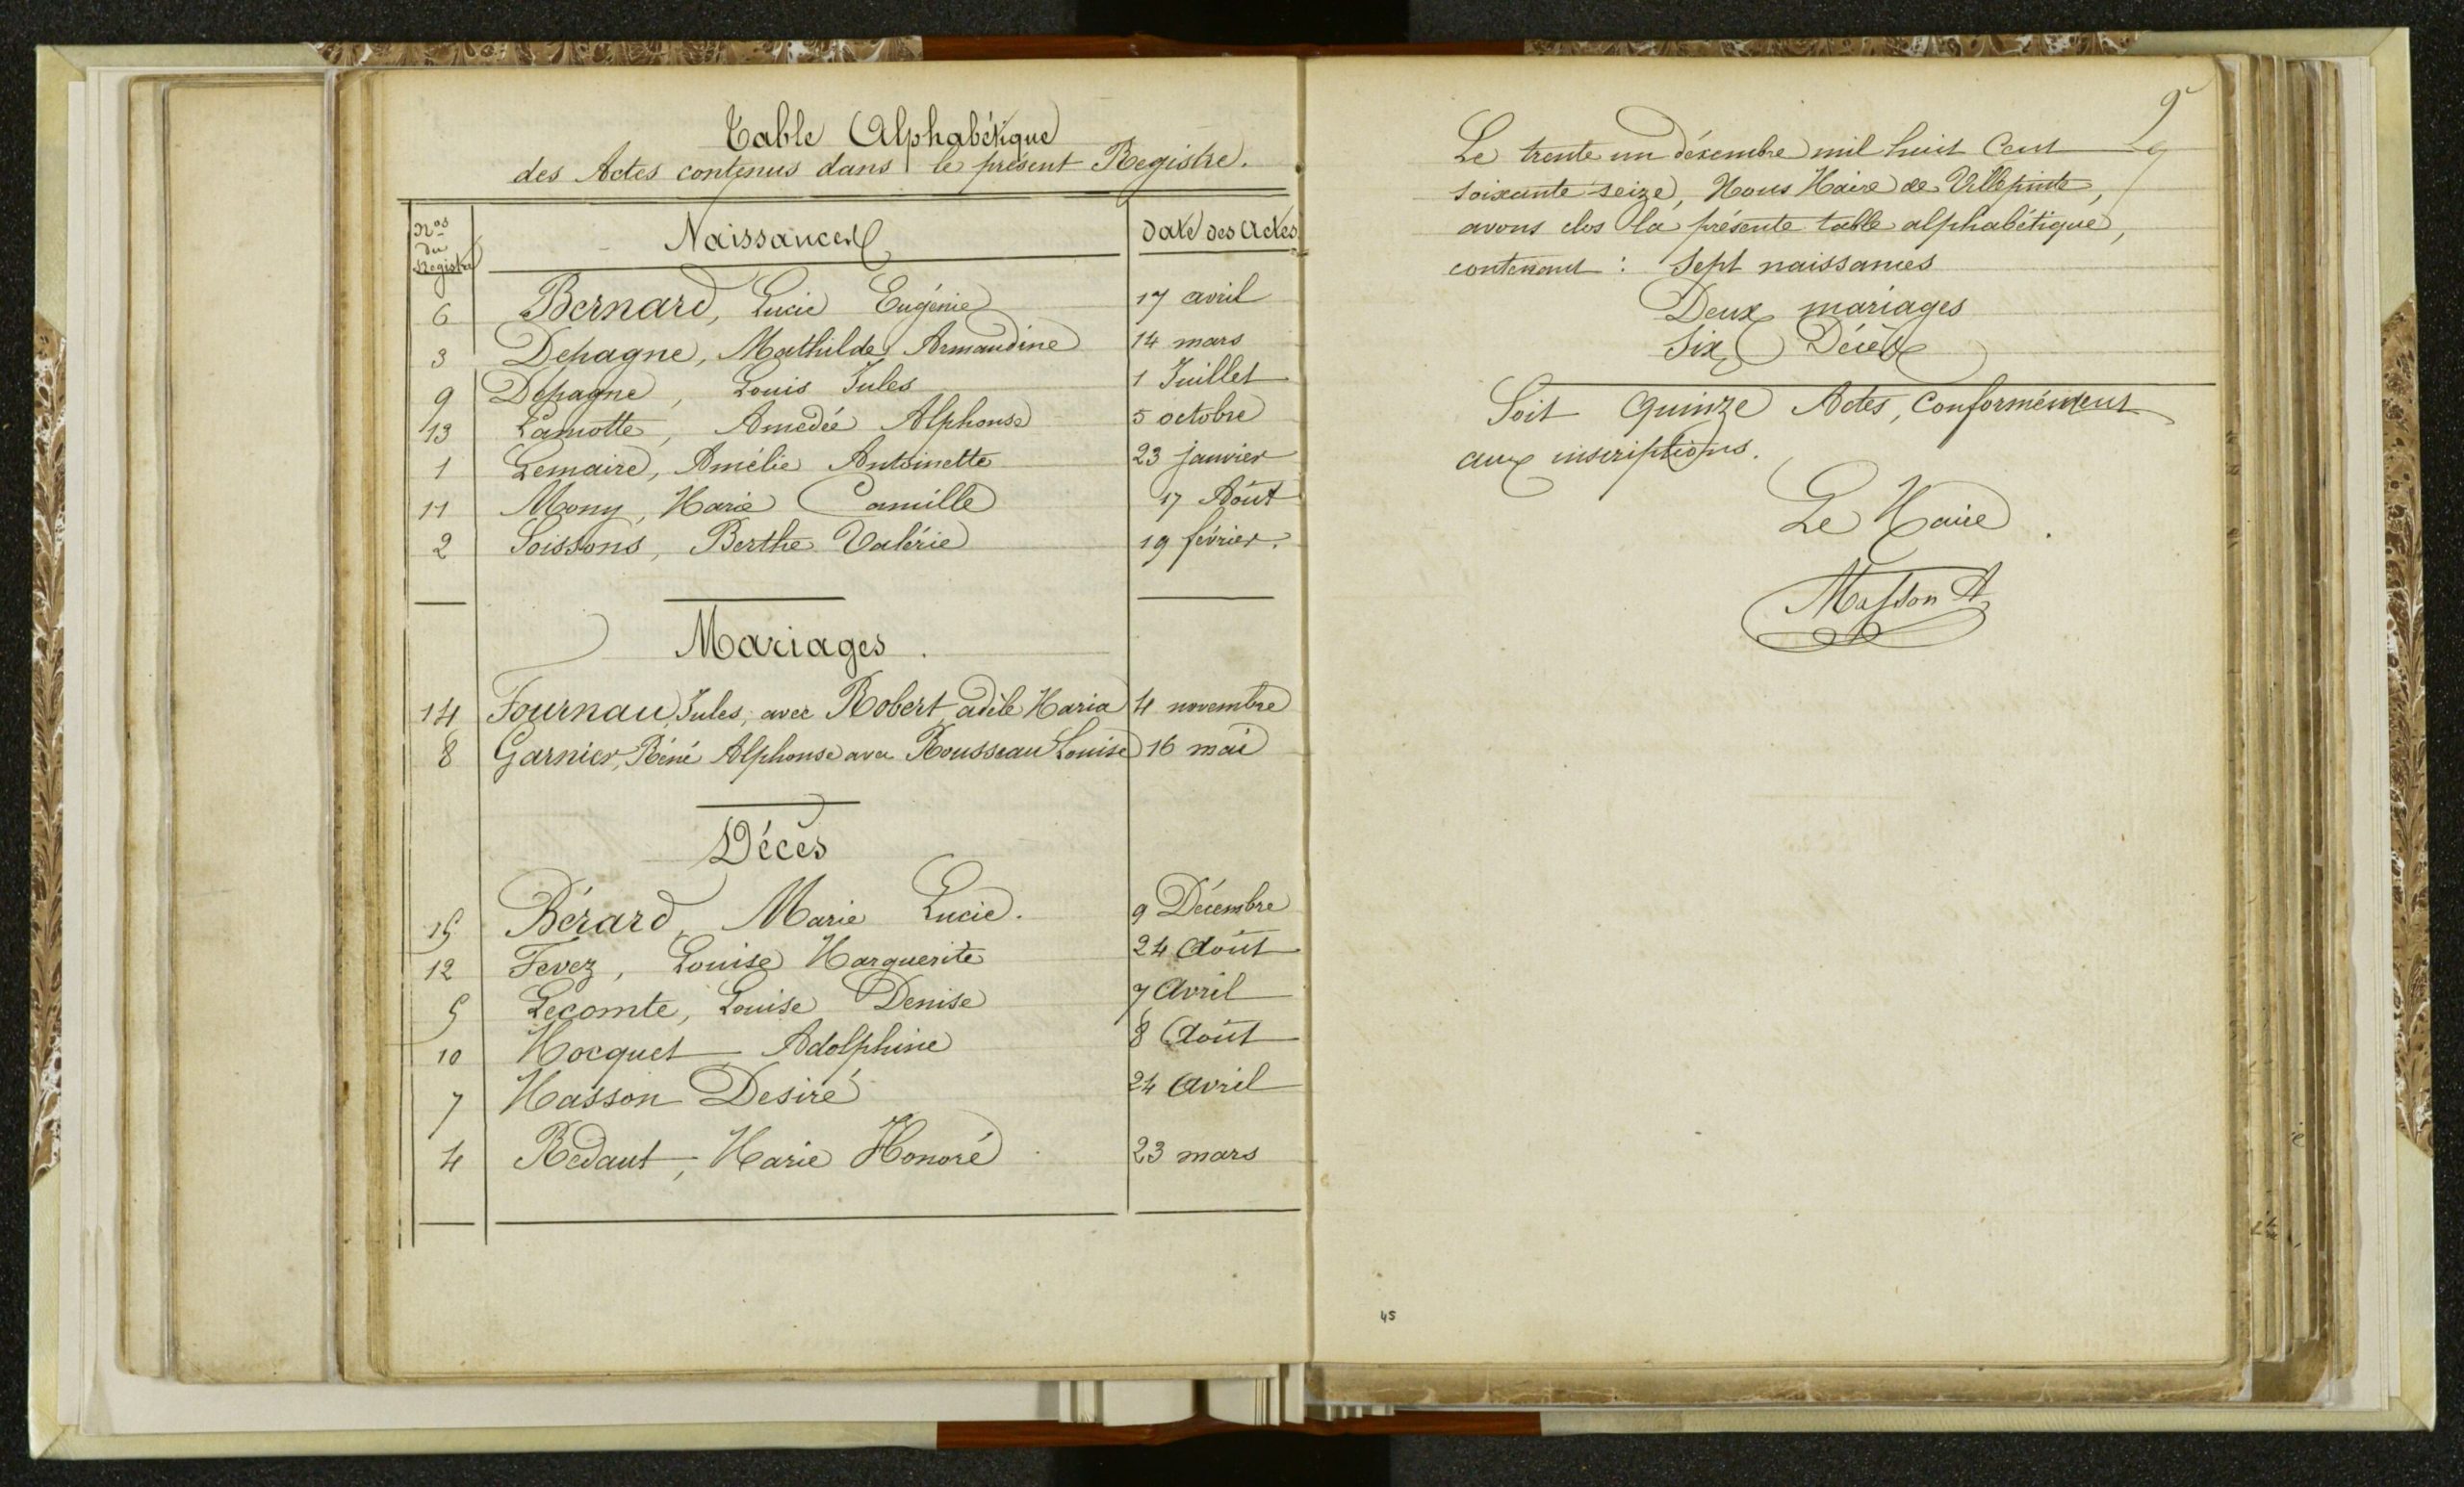 Table Alphabétique
des Actes contenus dans le présent Registre.
Nos du Registre Naissances Date des Actes
6 Bernard, Lucie Eugénie 17 avril
3 Depagne, Mathilde Armandine 14 mars
9 Depagne, Louis Jules 1 Juillet
13 Lamotte, Amédée Alphonse 5 octobre
1 Lemaire, Amélie Antoinette 23 janvier
11 Mony, Marie Camille 17 Août
2 Soissons, Berthe Valérie 19 février.
Mariages.
14 Fournau, Jules, avec Robert adèle Maria 4 novembre
8 Garnier, Réné Alphonse avec Rousseau Louise 16 mai
Décès
15 Bérard, Marie Lucie. 9 Décembre
12 Fevez, Louise Marguerite 24 Août
5 Lecomte, Louise Denise 7 Avril
10 Mocquet Adolphine 8 Août
7 Masson Desiré 24 Avril
4 Redaut, Marie Honoré 23 mars
Le trente un décembre mil huit Cent
soixante seize, Nous Maire de Villepinte,
avons clos la présente table alphabétique,
contenant : Sept naissances
Deux mariages
Six Décès
Soit Quinze Actes, Conformément
aux inscriptions.
Le Maire.
Masson A
45